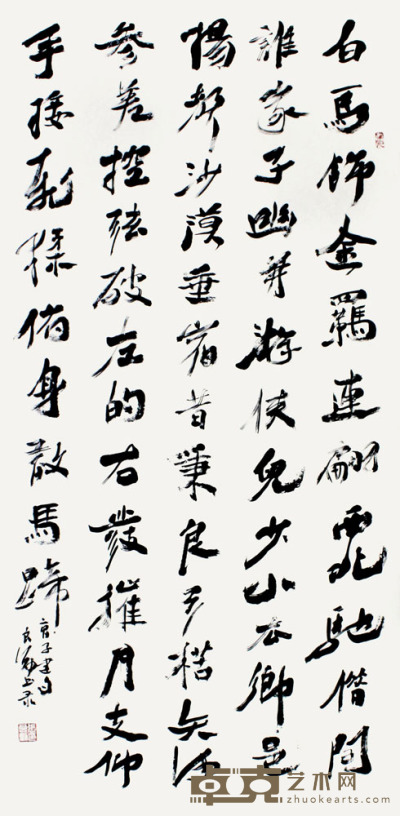 白馬飾金羈連翩西北馳借問
誰家子幽并游俠兒少小去鄉邑
揚聲沙漠垂宿昔秉良弓楛矢何
參差控弦破左的右發摧月支仰
手接飛猱俯身散馬蹄
子建句
卓克艺术网
zhuokearts.com